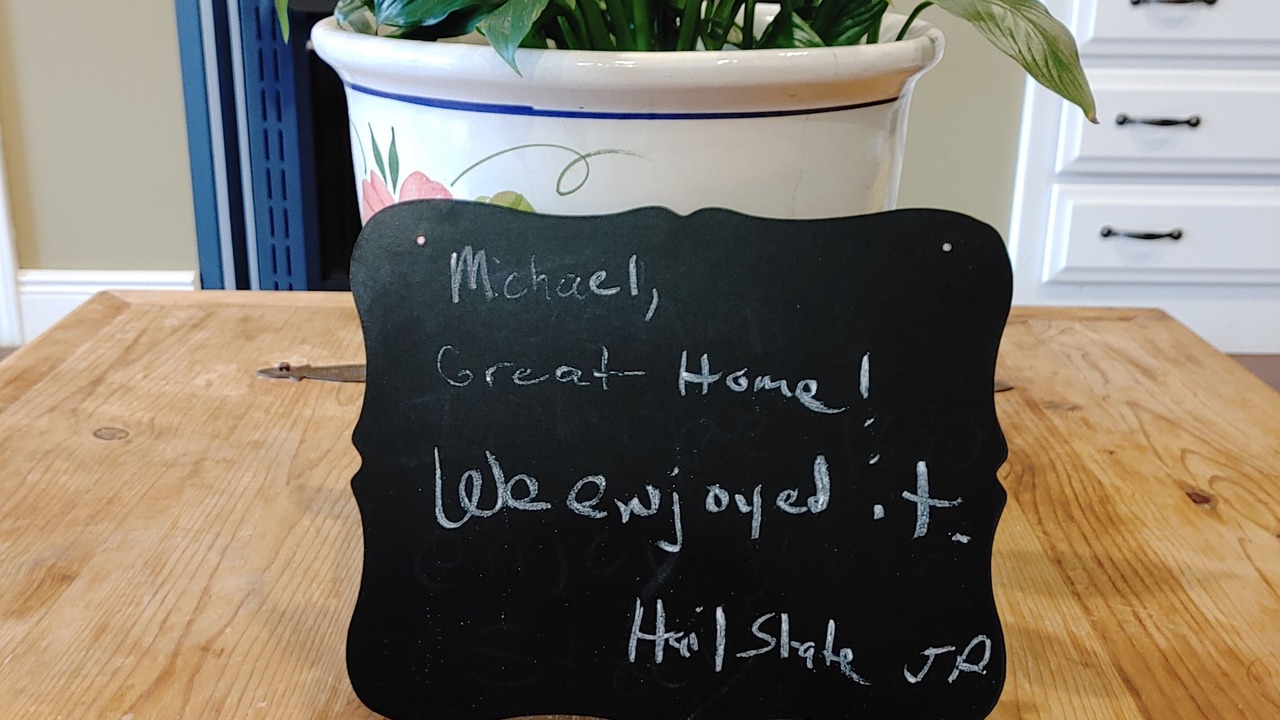 Michael,
Great Home!
We enjoyed it.
Hail State JR